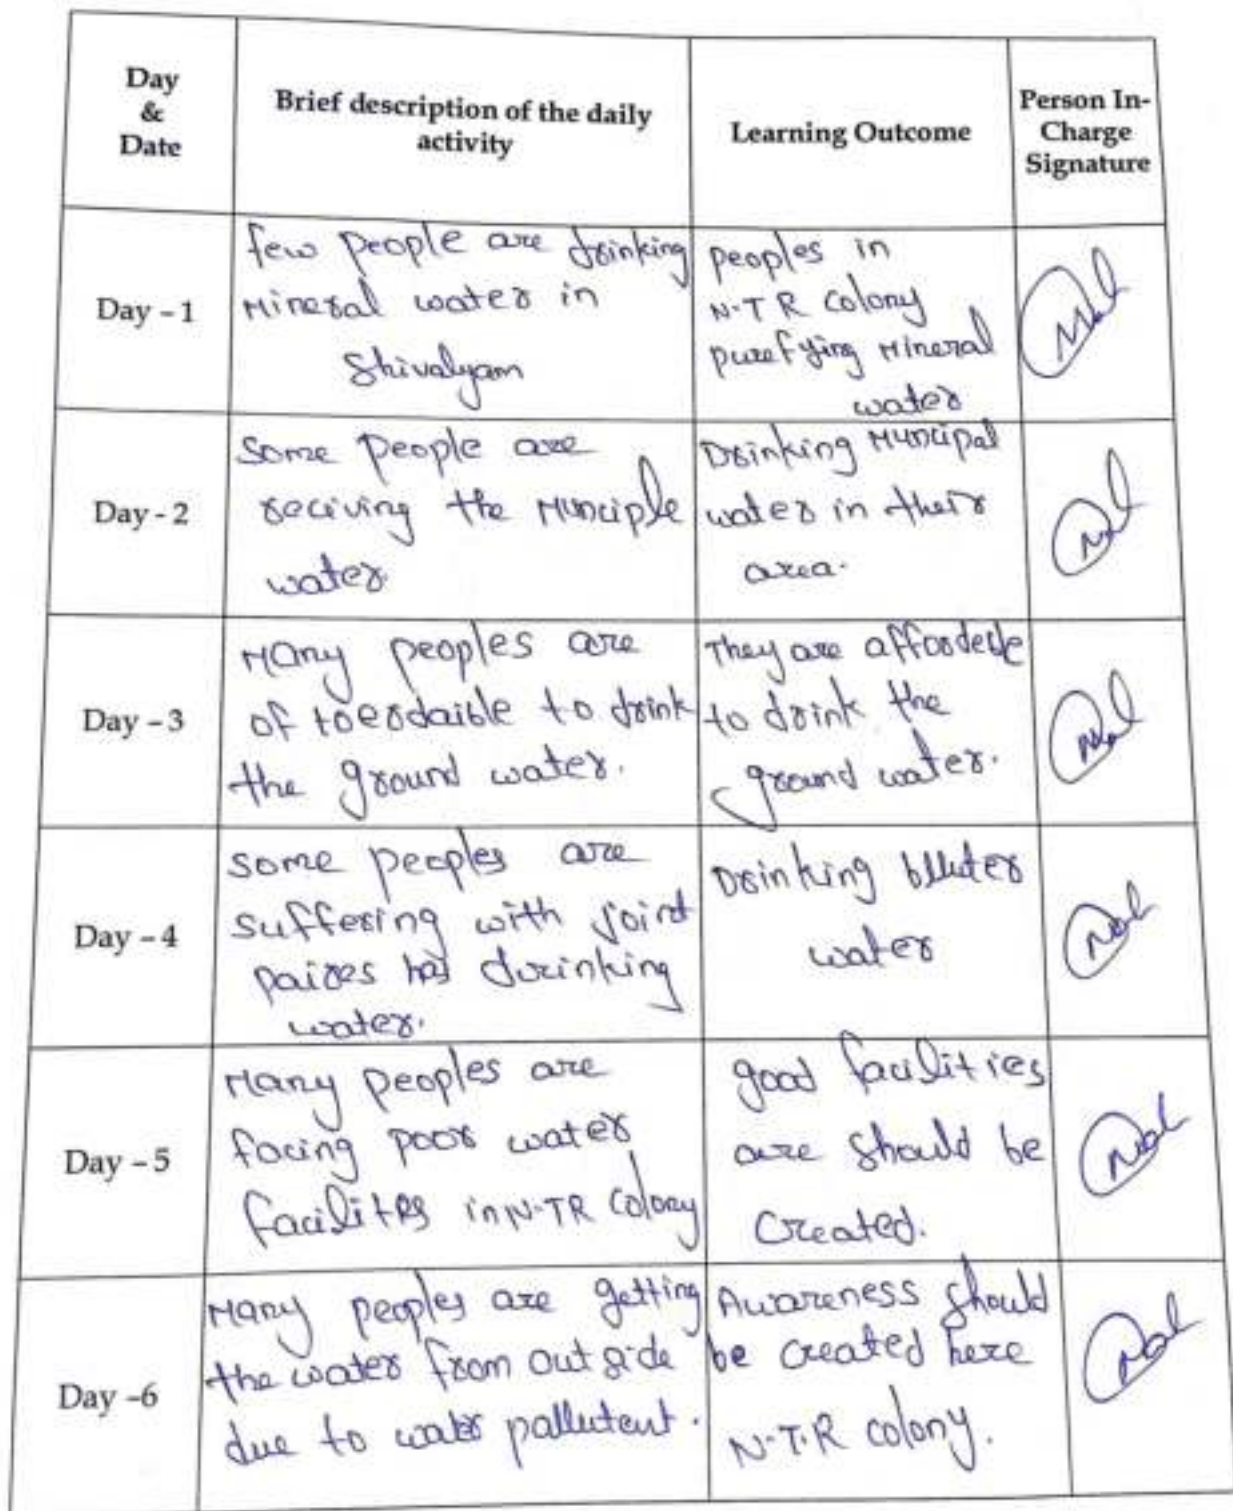 Day
&
Date
Brief description of the daily
activity
Learning Outcome
Person In-
Charge
Signature
Day - 1
few people are drinking
Mineral water in
Shivalyam
peoples in
N.T R colony
purefying Mineral
water
Day - 2
Some people are
reciving the Munciple
water.
Drinking Muncipal
water in their
area.
Day - 3
Many peoples are
of to drink
the ground water.
They are
to drink the
ground water.
Day - 4
some peoples are
suffering with joint
drinking
water.
Drinking
water
Day - 5
Many peoples are
facing poor water
in N.TR colony
good facilities
are should be
created.
Day -6
Many peoples are getting
the water from out side
due to water pallutent.
Awareness should
be created here
N.T.R colony.